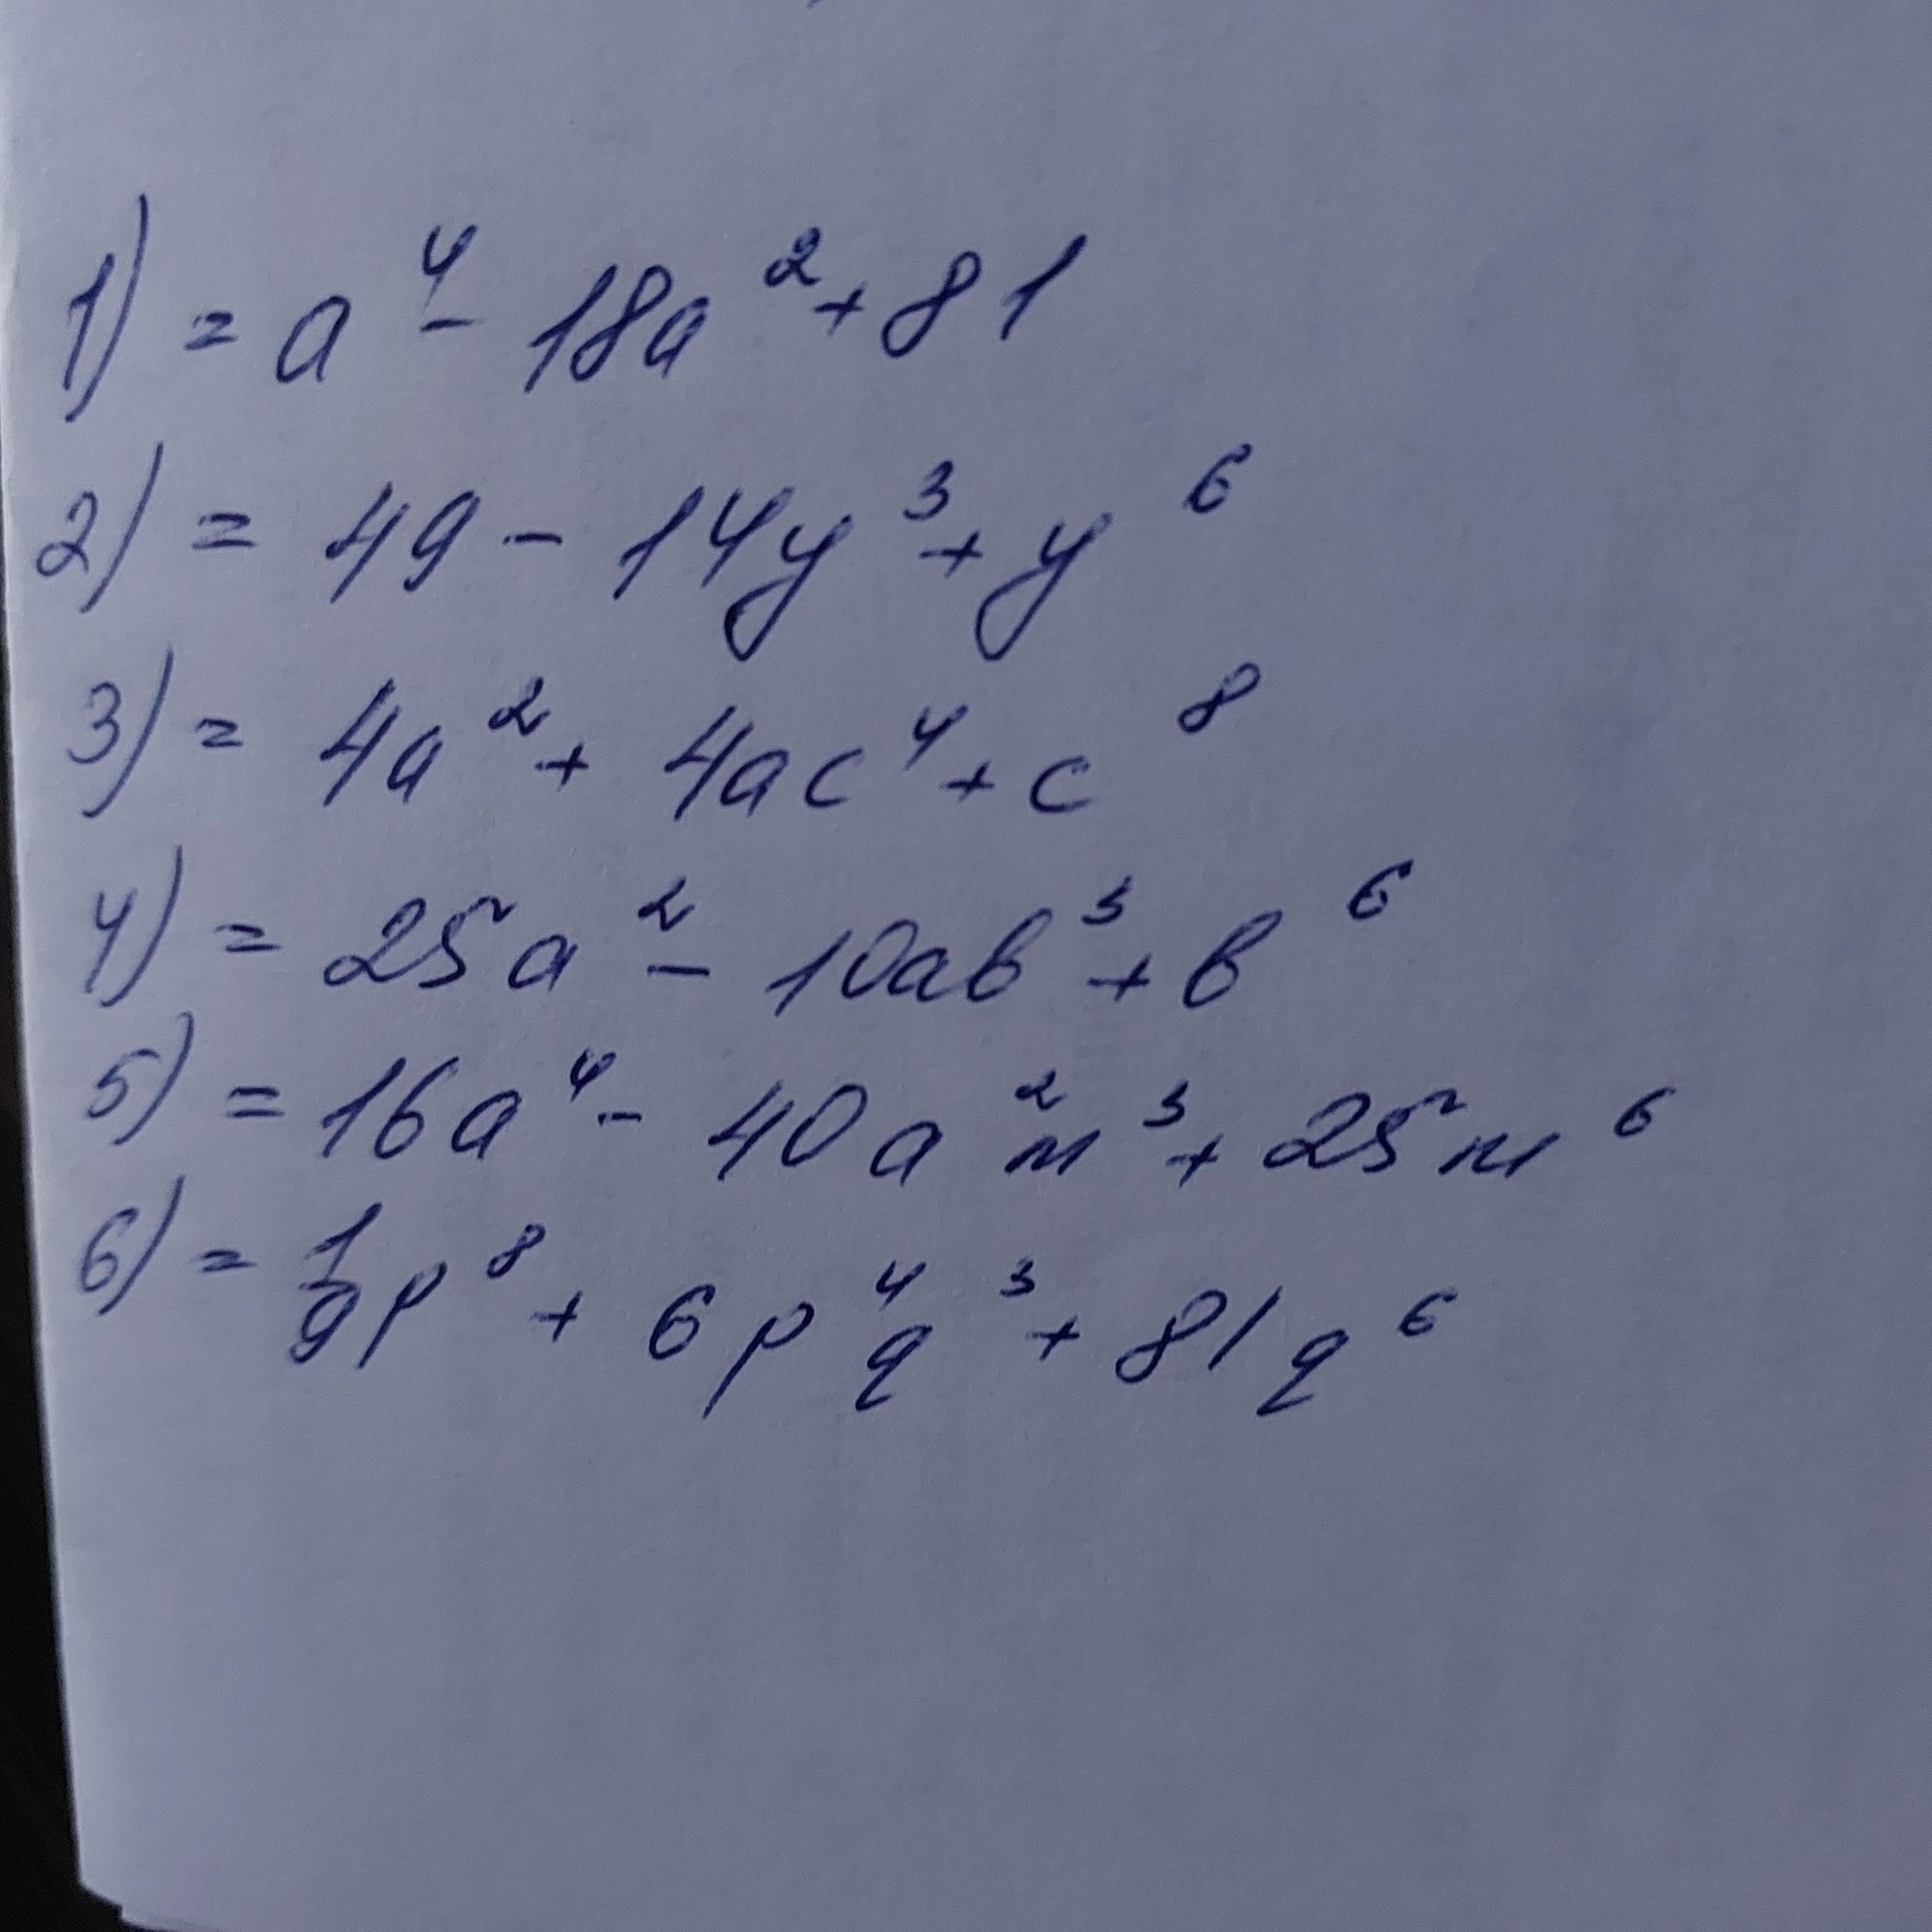 1) = a⁴ - 18a² + 81
2) = 49 - 14y³ + y⁶
3) = 4a² + 4ac⁴ + c⁸
4) = 25a² - 10ab³ + b⁶
5) = 16a⁴ - 40a²m³ + 25m⁶
6) = 1/9 p⁸ + 6p⁴q³ + 81q⁶